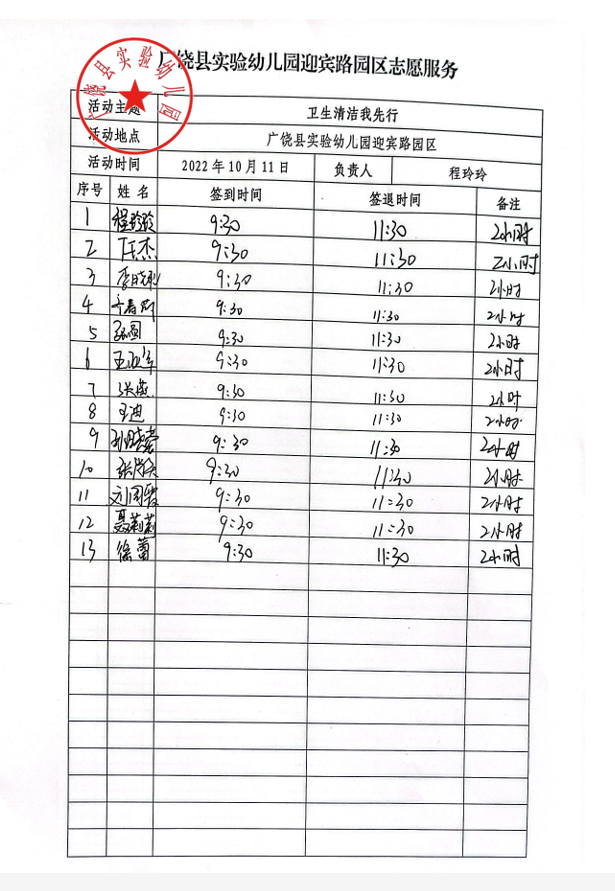 广饶县实验幼儿园迎宾路园区志愿服务
广饶县实验幼儿园
活动主题 卫生清洁我先行
活动地点 广饶县实验幼儿园迎宾路园区
活动时间 2022年10月11日 负责人 程玲玲
序号 姓名 签到时间 签退时间 备注
1 程玲玲 9:30 11:30 2小时
2 任杰 9:30 11:30 2小时
3 9:30 11:30 2小时
4 9:30 11:30 2小时
5 9:30 11:30 2小时
6 9:30 11:30 2小时
7 9:30 11:30 2小时
8 王迪 9:30 11:30 2小时
9 9:30 11:30 2小时
10 9:30 11:30 2小时
11 9:30 11:30 2小时
12 聂莉莉 9:30 11:30 2小时
13 徐蕾 9:30 11:30 2小时